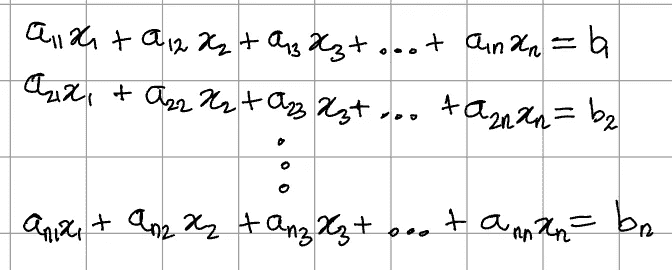 a₁₁x₁ + a₁₂x₂ + a₁₃x₃ + ... + a₁ₙxₙ = b₁
a₂₁x₁ + a₂₂x₂ + a₂₃x₃ + ... + a₂ₙxₙ = b₂
∘
∘
∘
aₙ₁x₁ + aₙ₂x₂ + aₙ₃x₃ + ... + aₙₙxₙ = bₙ